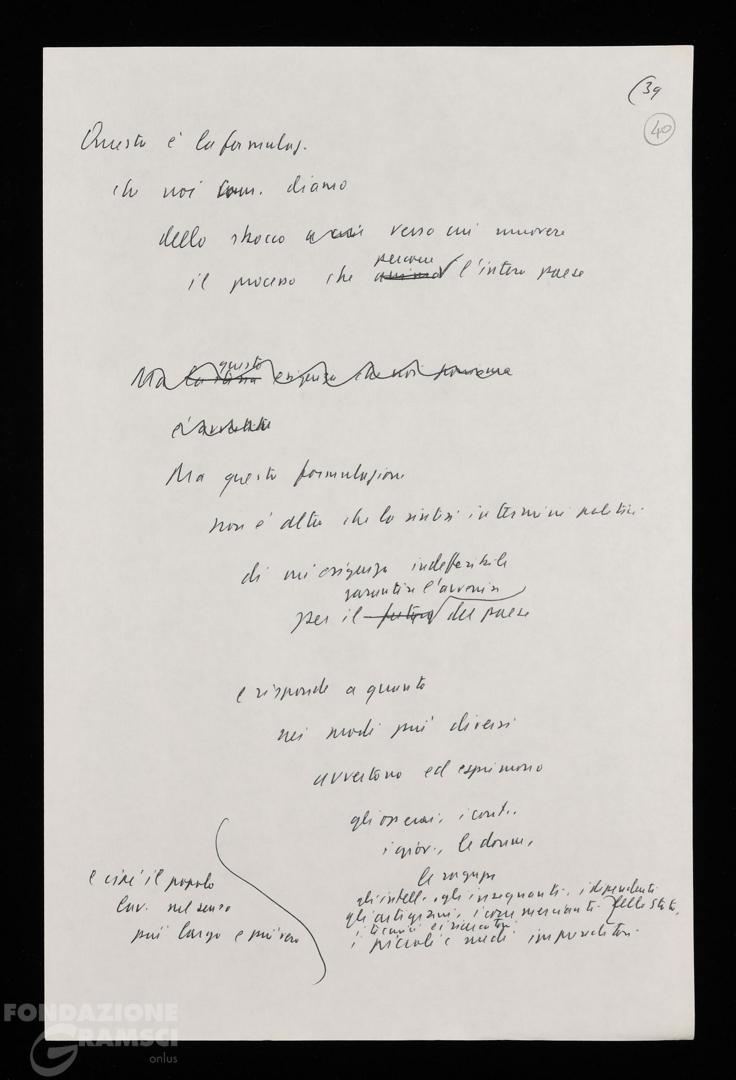 (39
40
Questa è la formulaz.
che noi com. diamo
dello sbocco verso cui muovere
il processo che percorre l'intero paese
Ma questa esigenza che noi poniamo
è avvertita
Ma questa formulazione
non è altro che la sintesi in termini politici
di un'esigenza indefferibile
garantire l'avvenire
per il futuro del paese
e risponde a quanto
nei modi più diversi
avvertono ed esprimono
gli operai, i cont.,
i giov., le donne,
le ragazze
gli intell., gli insegnanti, i dipendenti dello Stato,
gli artigiani, i commercianti
i tecnici e i ricercatori
i piccoli e medi imprenditori
e cioè il popolo
lav. nel senso
più largo e più vero
FONDAZIONE
GRAMSCI
onlus